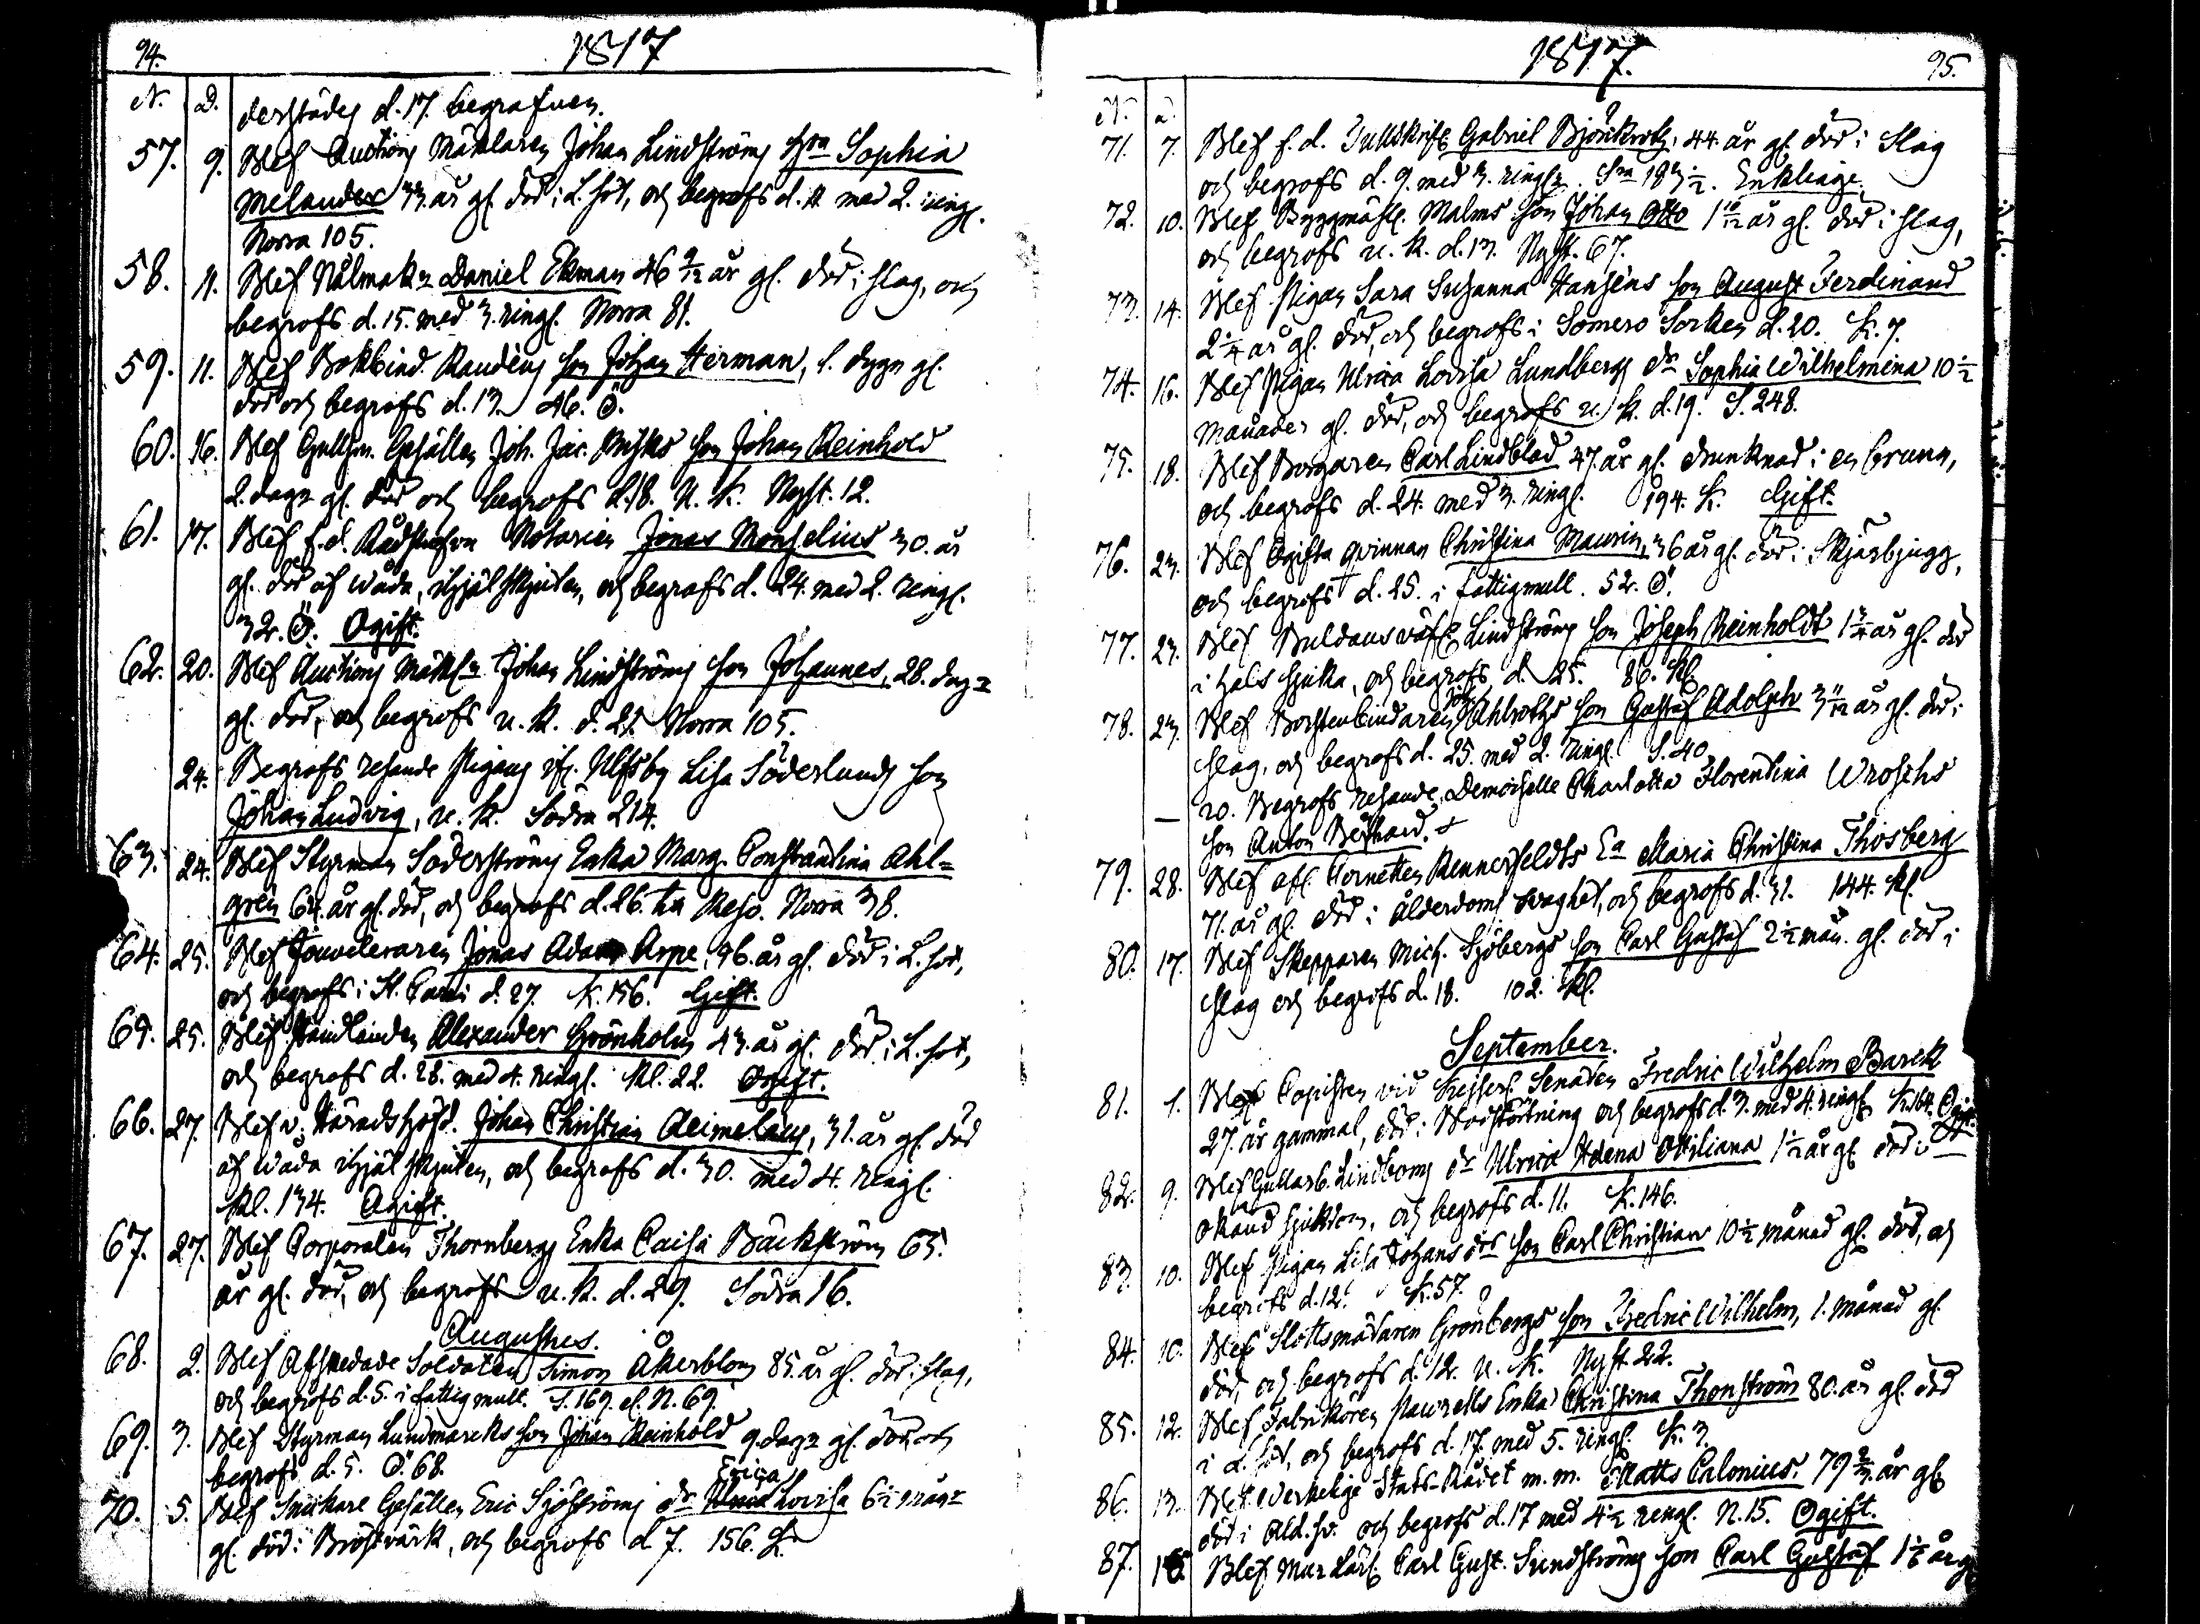 94. 1817
N. D. derstädes d. 17. begrafven.
57. 9. Blef Auctions Mäklaren Johan Lindströms hu Sophia
Melander 33. år gl. död i L. sot, och begrofs d. med 2. ringn.
Norra 105.
58. 11. Blef Nålmak. Daniel Ekman 46 9/12 år gl. död i slag, och
begrofs d. 15. med 3. ringn. Norra 81.
59. 11. Blef Bokbind. Randéns son Johan Herman, 1. dygn gl.
död och begrofs d. 13. 46. Ö.
60. 16. Blef Gullsm. Gesällen Joh. Jac. son Johan Reinhold
2. dagr gl. död och begrofs d. 18. u. k. Nyst. 12.
61. 17. Blef f. d. Rådstufvu Notarien Jonas Monselius 30. år
gl. död af wåda, ihjäl skjuten, och begrofs d. 24. med 2. ringn.
32. Ö. Ogift.
62. 20. Blef Auctions Mäkl. Johan Lindströms son Johannes, 28. dagr
gl. död, och begrofs u. k. d. 21. Norra 105.
24. Begrofs resande Pigans ifr. Ulfsby Lisa Söderlunds son
Johan Ludvig, u. k. Södra 214.
63. 24. Blef Styrman Söderströms Enka Marg. Constantina Ahl=
grén 64. år gl. död, och begrofs d. 26. Reso. Norra 38.
64. 25. Blef Jouveleraren Jonas Adam Arpe, 36. år gl. död i L. sot,
och begrofs i St. Carin d. 27. K. 156. Gift.
65. 25. Blef Handlanden Alexander Grönholm 43. år gl. död i L. sot,
och begrofs d. 28. med 4. ringn. Kl. 22. Ogift.
66. 27. Blef v. Häradshöfd. Johan Christian Aeimelaeus, 31. år gl. död
af wåda ihjäl skjuten, och begrofs d. 30. med 4. ringn.
Kl. 134. Ogift.
67. 27. Blef Corporalen Thornbergs Enka Caisa Bäckström 65.
år gl. död, och begrofs u. k. d. 29. Södra 16.
Augustus.
68. 2. Blef Afskedade Soldaten Simon Åkerblom 85. år gl. död i slag,
och begrofs d. 5. i fattigmull. S. 169. el. N. 69.
69. 3. Blef Styrman Lundmarcks son Johan Reinhold 9. dagr gl. död och
begrofs d. 5. Ö. 68.
70. 5. Blef Snickare Gesällen Eric Sjöströms dr Erica Lovisa 6 1/2 mån.
gl. död i Bröstvärk, och begrofs d. 7. 156. K.
1817. 95.
N. D.
71. 7. Blef f. d. Tullskrifv. Gabriel Björkroth, 44. år gl. död i slag
och begrofs d. 9. med 3. ringn. Sra 183 1/2. Enklinge.
72. 10. Blef Byggmäst. Malms son Johan Otto 1 10/12 år gl. död i slag,
och begrofs u. k. d. 13. Nyst. 67.
73. 14. Blef Pigan Sara Susanna Hanséns son August Ferdinand
2 1/4 år gl. död, och begrofs i Somero Sorken d. 20. K. 7.
74. 16. Blef Pigan Ulrica Lovisa Lundbergs dr Sophia Wilhelmina 10 1/2
månader gl. död, och begrofs u. k. d. 19. S. 248.
75. 18. Blef Borgaren Carl Lindblad 47. år gl. drunknad i en brunn,
och begrofs d. 24. med 3. ringn. 194. K. Gift.
76. 23. Blef Ogifta qvinnan Christina Maurin, 36 år gl. död i Skjörbjugg,
och begrofs d. 25. i fattigmull. 52. Ö.
77. 23. Blef Buldansväfv. Lindströms son Joseph Reinholdt 1 3/4 år gl. död
i hals sjuka, och begrofs d. 25. 86. Kl.
78. 23. Blef Borstenbindaren Joh. Ahlroths son Gustaf Adolph 3 11/12 år gl. död i
slag, och begrofs d. 25. med 2. ringn. S. 40
— 20. Begrofs resande Demoiselle Charlotta Florentina Wroschs
son Anton Bernhard.
79. 28. Blef afl. Cornetten Rennerfeldts Ea Maria Christina Thosberg
71. år gl. död i Ålderdoms svaghet, och begrofs d. 31. 144. Kl.
80. 17. Blef Skepparen Mich. Sjöbergs son Carl Gustaf 2 1/2 mån. gl. död i
slag och begrofs d. 18. 102. Kl.
September.
81. 1. Blef Copisten vid Kejserl. Senaten Fredric Wilhelm Barck
27. år gammal, död i Blodstörtning och begrofs d. 3. med 4. ringn. K. 164. Ogift.
82. 9. Blef Gullarb. Lindboms dr Ulrica Adena Ottiliana 1 1/2 år gl. död i
okänd sjukdom, och begrofs d. 11. K. 146.
83. 10. Blef Pigan Lisa Johans drs son Carl Christian 10 1/2 månad gl. död, och
begrofs d. 12. K. 57.
84. 10. Blef Slottsmadaren Grönbergs son Fredric Wilhelm, 1. månad gl.
död, och begrofs d. 12. u. k. Nyst. 22.
85. 12. Blef Fabrikören Pawrells Enka Christina Thonström 80. år gl. död
i L. sot, och begrofs d. 17. med 5. ringn. K. 3.
86. 13. Blef Werkelige Stats-Rådet m. m. Matts Calonius 79 2/3 år gl.
död i Åld. sv. och begrofs d. 17 med 4 1/2 ringn. N. 15. Ogift.
87. 16. Blef Murlärl. Carl Gust. Sundströms son Carl Gustaf 1 1/2 år gl.